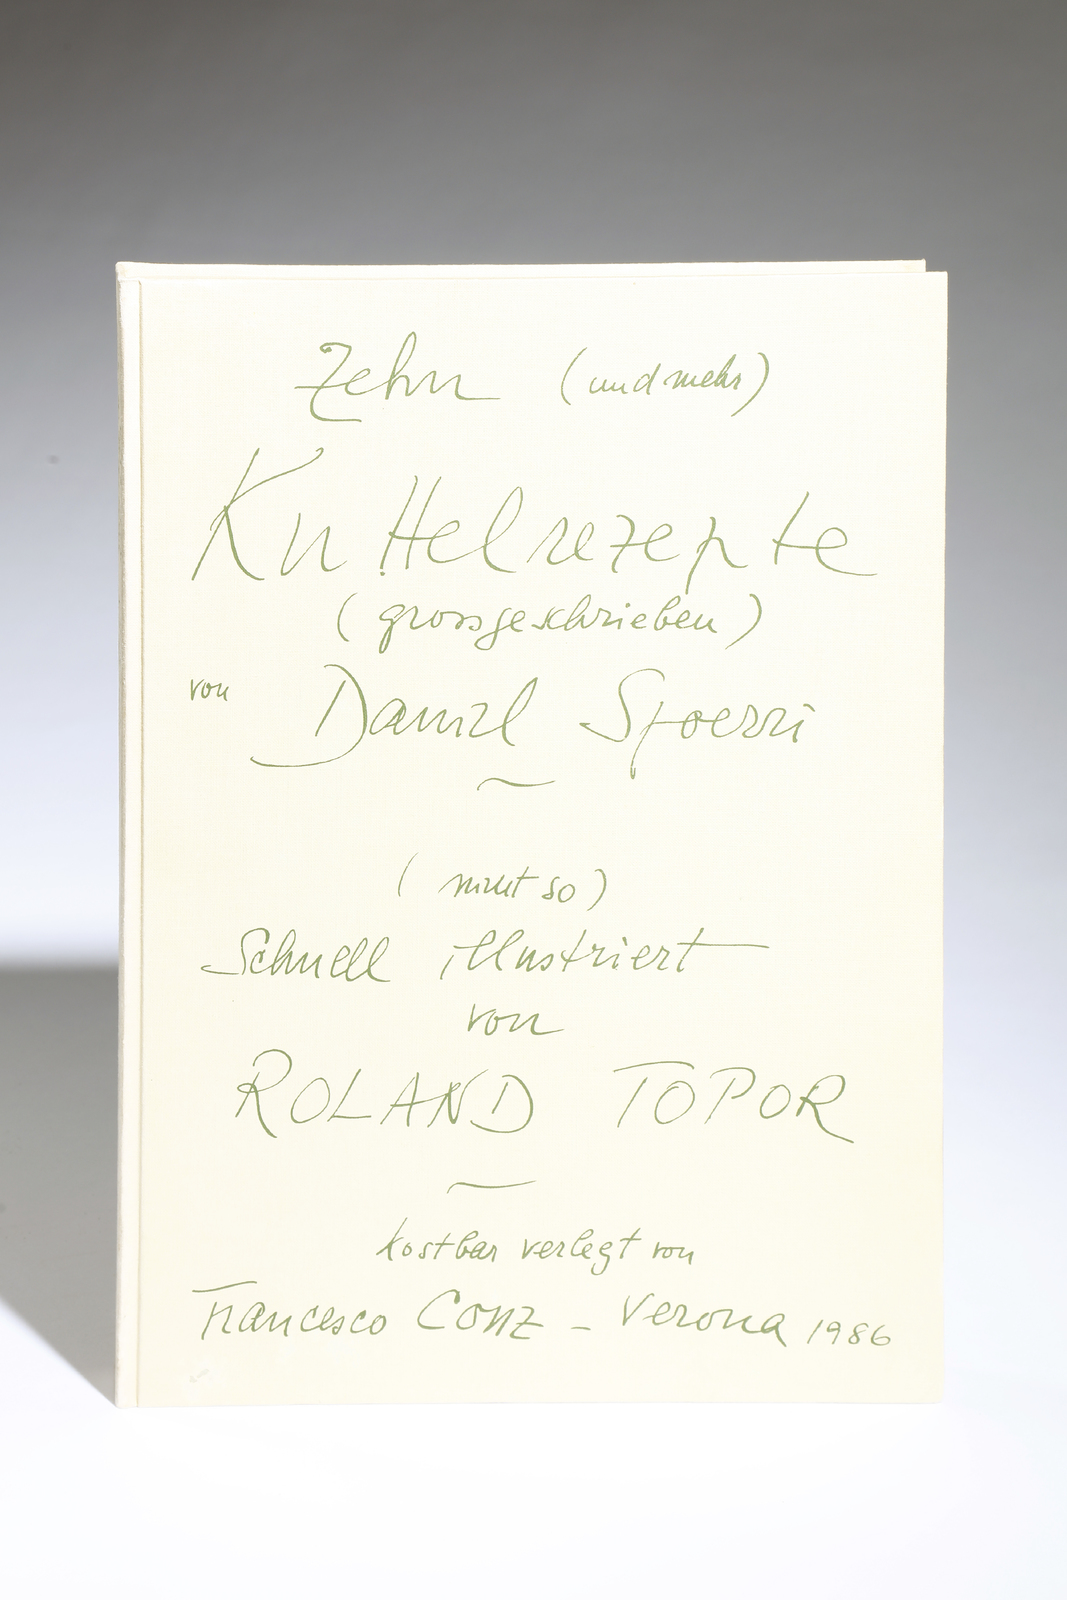 Zehn (und mehr)
Kuttelrezepte
(grossgeschrieben)
von Daniel Spoerri
(nicht so)
Schnell illustriert
von
ROLAND TOPOR
kostbar verlegt von
Francesco Conz - Verona 1986